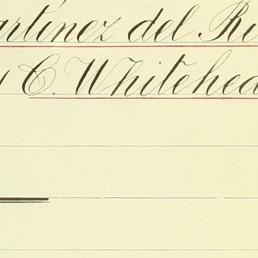 artínez del Ri
C. Whitehea